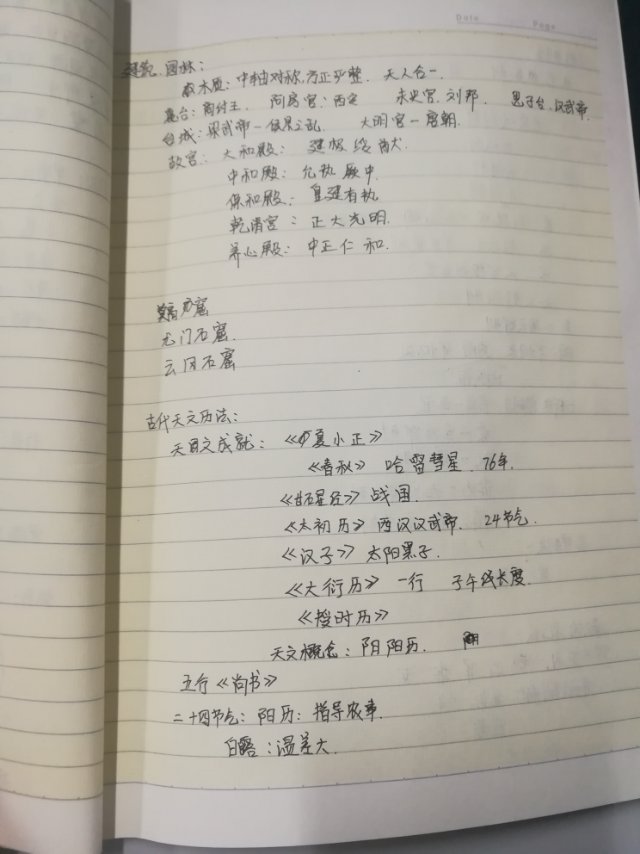 Date Page
建筑 园林：
木质：中轴对称，方正严整．天人合一．
鹿台：商纣王 阿房宫：西安 未央宫．刘邦． 思子台．汉武帝．
台城：梁武帝—侯景之乱 大明宫—唐朝．
故宫：太和殿：建极绥猷
中和殿：允执厥中
保和殿：皇建有极
乾清宫：正大光明．
养心殿：中正仁和．
石窟
龙门石窟．
云冈石窟
古代天文历法：
天文成就：《夏小正》
《春秋》哈雷彗星．76年．
《甘石星经》战国．
《太初历》西汉汉武帝．24节气．
《汉子》太阳黑子．
《大衍历》一行 子午线长度．
《授时历》
天文概念：阴阳历．
五行《尚书》
二十四节气：阳历：指导农事．
白露：温差大．